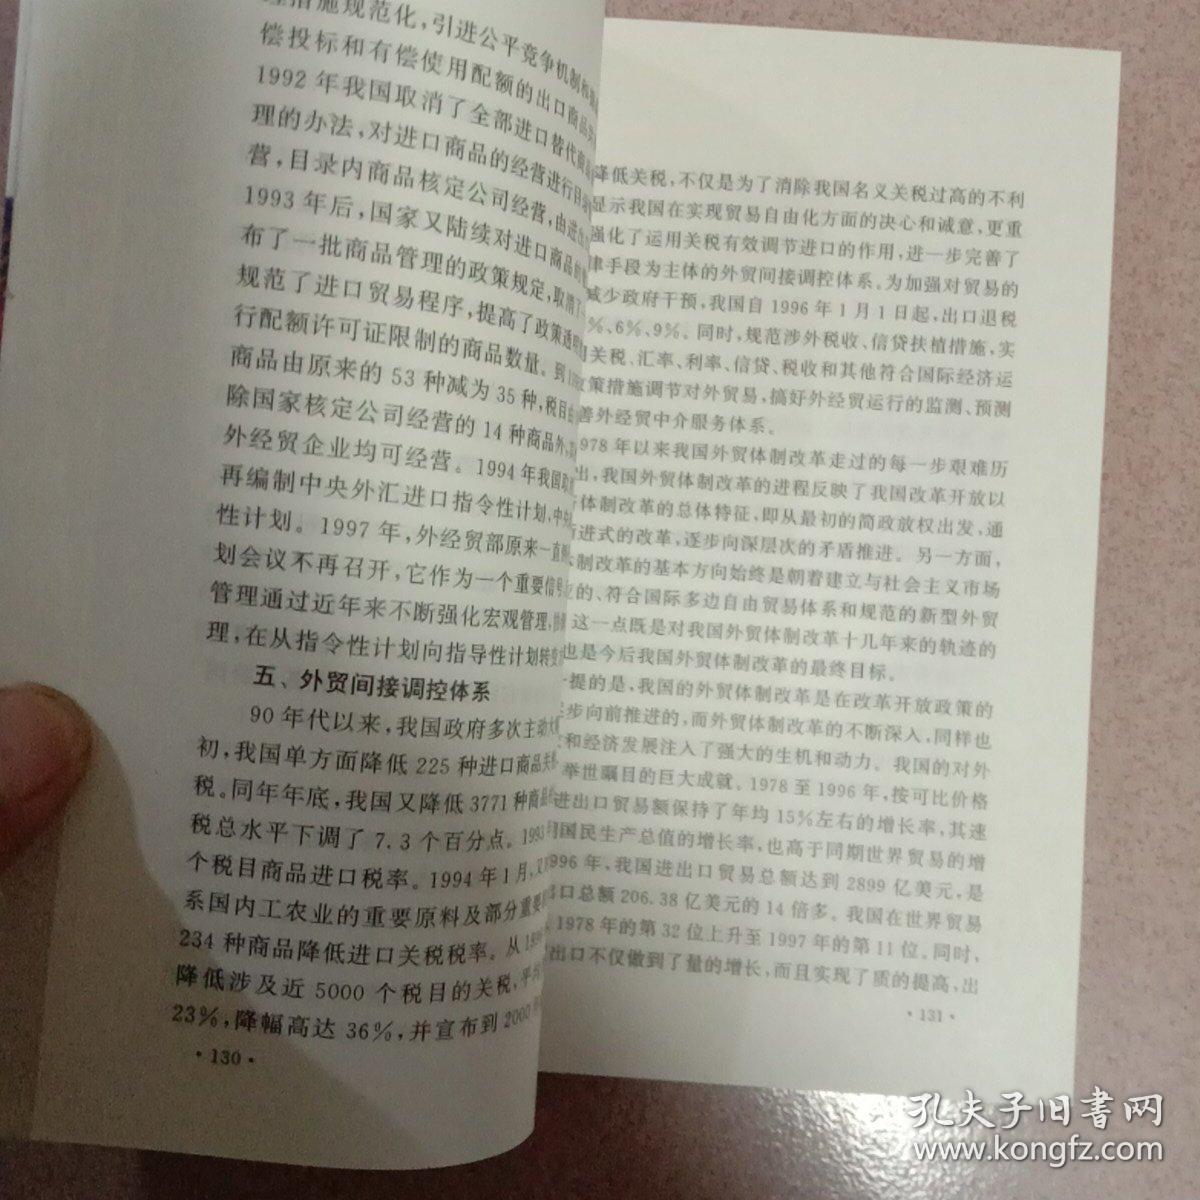 理措施规范化，引进公平竞争机制和
偿投标和有偿使用配额的出口商品
1992年我国取消了全部进口替代商品
理的办法，对进口商品的经营进行目
营，目录内商品核定公司经营，由进
1993年后，国家又陆续对进口商品
布了一批商品管理的政策规定，取消了
规范了进口贸易程序，提高了政策透明
行配额许可证限制的商品数量。到
商品由原来的53种减为35种，税目
除国家核定公司经营的14种商品外，
外经贸企业均可经营。1994年我国取
再编制中央外汇进口指令性计划，中
性计划。1997年，外经贸部原来一直
划会议不再召开，它作为一个重要信号
管理通过近年来不断强化宏观管理，
理，在从指令性计划向指导性计划转变
五、外贸间接调控体系
90年代以来，我国政府多次主动大
初，我国单方面降低225种进口商品关
税。同年年底，我国又降低3771种商品
税总水平下调了7.3个百分点。1993
个税目商品进口税率。1994年1月，又
系国内工农业的重要原料及部分重要
234种商品降低进口关税税率。从199
降低涉及近5000个税目的关税，平均
23%，降幅高达36%，并宣布到2000
·130·
降低关税，不仅是为了消除我国名义关税过高的不利
显示我国在实现贸易自由化方面的决心和诚意，更重
强化了运用关税有效调节进口的作用，进一步完善了
律手段为主体的外贸间接调控体系。为加强对贸易的
减少政府干预，我国自1996年1月1日起，出口退税
%、6%、9%。同时，规范涉外税收、信贷扶植措施，实
关税、汇率、利率、信贷、税收和其他符合国际经济运
政策措施调节对外贸易，搞好外经贸运行的监测、预测
善外经贸中介服务体系。
978年以来我国外贸体制改革走过的每一步艰难历
出，我国外贸体制改革的进程反映了我国改革开放以
体制改革的总体特征，即从最初的简政放权出发，通
进式的改革，逐步向深层次的矛盾推进。另一方面，
制改革的基本方向始终是朝着建立与社会主义市场
的、符合国际多边自由贸易体系和规范的新型外贸
这一点既是对我国外贸体制改革十几年来的轨迹的
也是今后我国外贸体制改革的最终目标。
提的是，我国的外贸体制改革是在改革开放政策的
步向前推进的，而外贸体制改革的不断深入，同样也
和经济发展注入了强大的生机和动力。我国的对外
举世瞩目的巨大成就。1978至1996年，按可比价格
进出口贸易额保持了年均15%左右的增长率，其速
国民生产总值的增长率，也高于同期世界贸易的增
996年，我国进出口贸易总额达到2899亿美元，是
口总额206.38亿美元的14倍多。我国在世界贸易
1978年的第32位上升至1997年的第11位。同时，
出口不仅做到了量的增长，而且实现了质的提高，出
·131·
孔夫子旧書网
www.kongfz.com